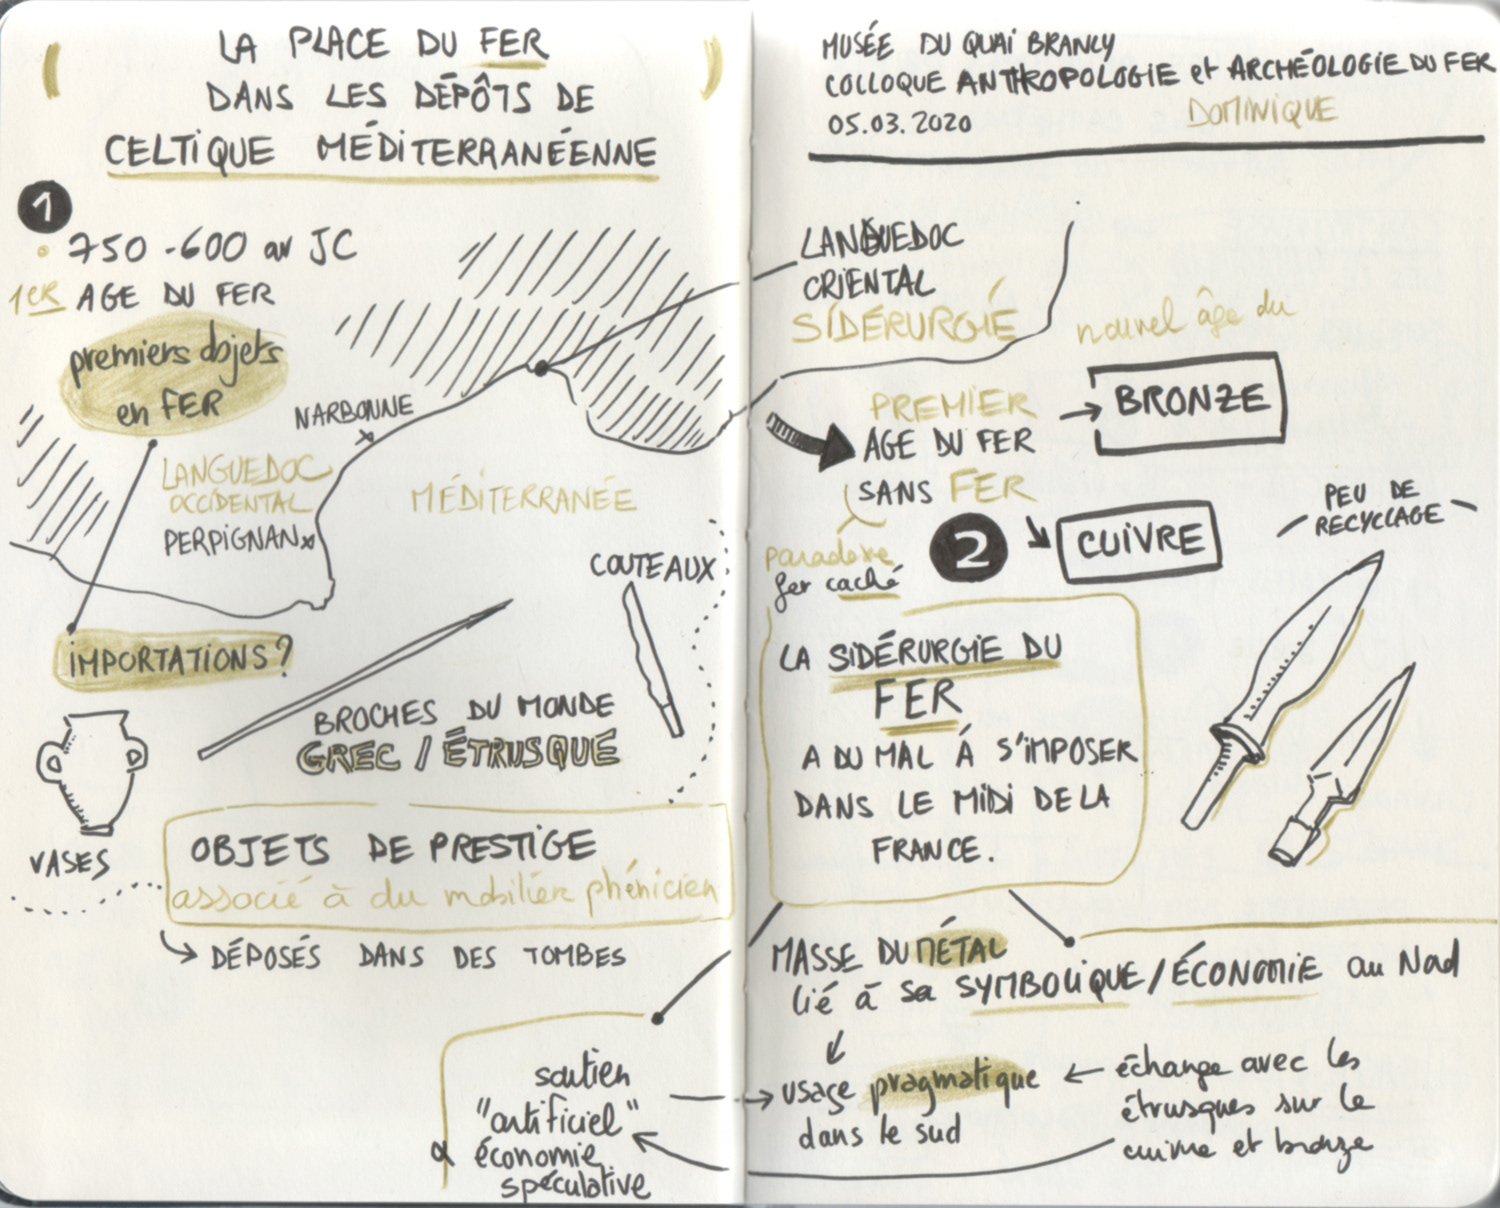 LA PLACE DU FER
DANS LES DÉPÔTS DE
CELTIQUE MÉDITERRANÉENNE
1
750 - 600 av JC
1ER AGE DU FER
premiers objets
en FER
NARBONNE
LANGUEDOC
OCCIDENTAL
PERPIGNAN
MÉDITERRANÉE
COUTEAUX
IMPORTATIONS ?
BROCHES DU MONDE
GREC / ÉTRUSQUE
VASES
OBJETS DE PRESTIGE
associé à du mobilier phénicien
DÉPOSÉS DANS DES TOMBES
soutien
"artificiel"
économie
spéculative
MUSÉE DU QUAI BRANLY
COLLOQUE ANTHROPOLOGIE et ARCHÉOLOGIE DU FER
05.03.2020
DOMINIQUE
LANGUEDOC
ORIENTAL
SIDÉRURGIE
nouvel âge du
PREMIER
AGE DU FER
SANS FER
BRONZE
CUIVRE
PEU DE
RECYCLAGE
paradoxe
fer caché
2
LA SIDÉRURGIE DU
FER
A DU MAL À S'IMPOSER
DANS LE MIDI DE LA
FRANCE.
MASSE DU MÉTAL
lié à sa SYMBOLIQUE / ÉCONOMIE au Nord
usage pragmatique
dans le sud
échange avec les
étrusques sur le
cuivre et bronze